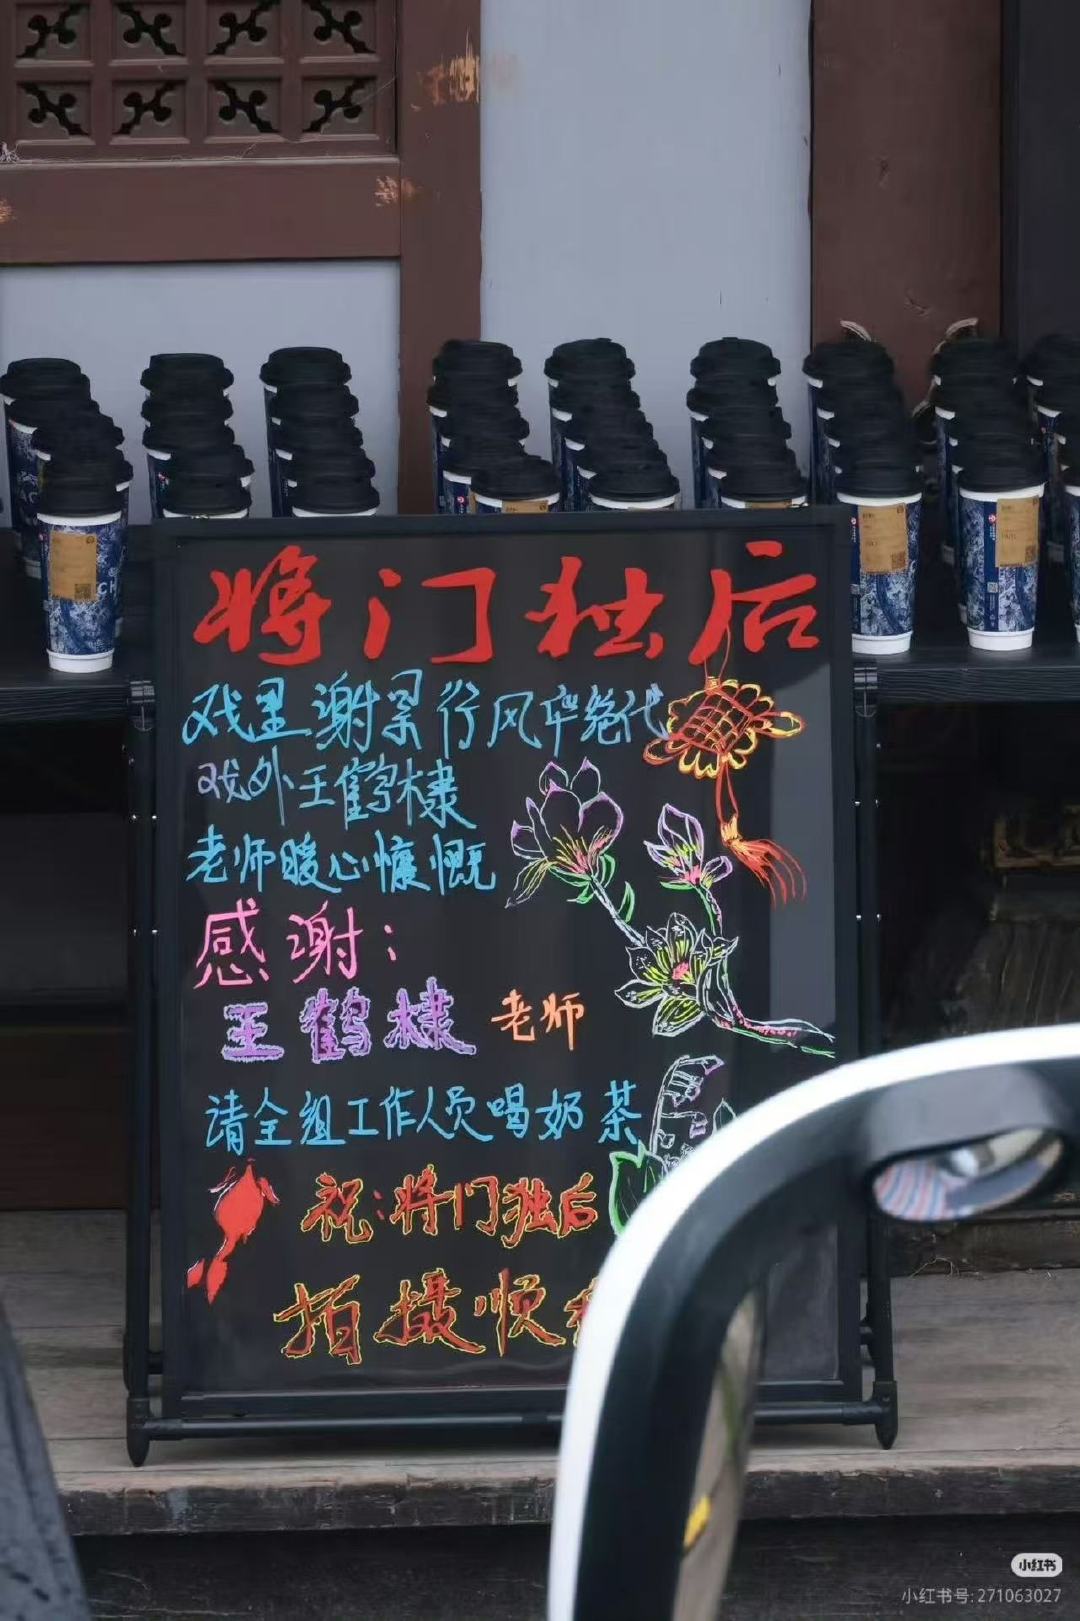 将门独后
戏里谢景行风华绝代
戏外王鹤棣
老师暖心慷慨
感谢:
王鹤棣 老师
请全组工作人员喝奶茶
祝:将门独后
拍摄顺
小红书
小红书号: 271063027